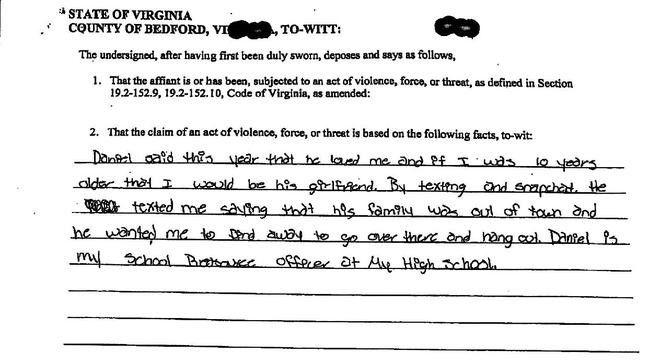 STATE OF VIRGINIA
COUNTY OF BEDFORD, VI A, TO-WITT:
The undersigned, after having first been duly sworn, deposes and says as follows,
1. That the affiant is or has been, subjected to an act of violence, force, or threat, as defined in Section
19.2-152.9, 19.2-152.10, Code of Virginia, as amended:
2. That the claim of an act of violence, force, or threat is based on the following facts, to-wit:
Daniel said this year that he loved me and if I was 10 years
older that I would be his girlfriend. By texting and snapchat. He
texted me saying that his family was out of town and
he wanted me to find away to go over there and hang out. Daniel is
my School officer at My High school.